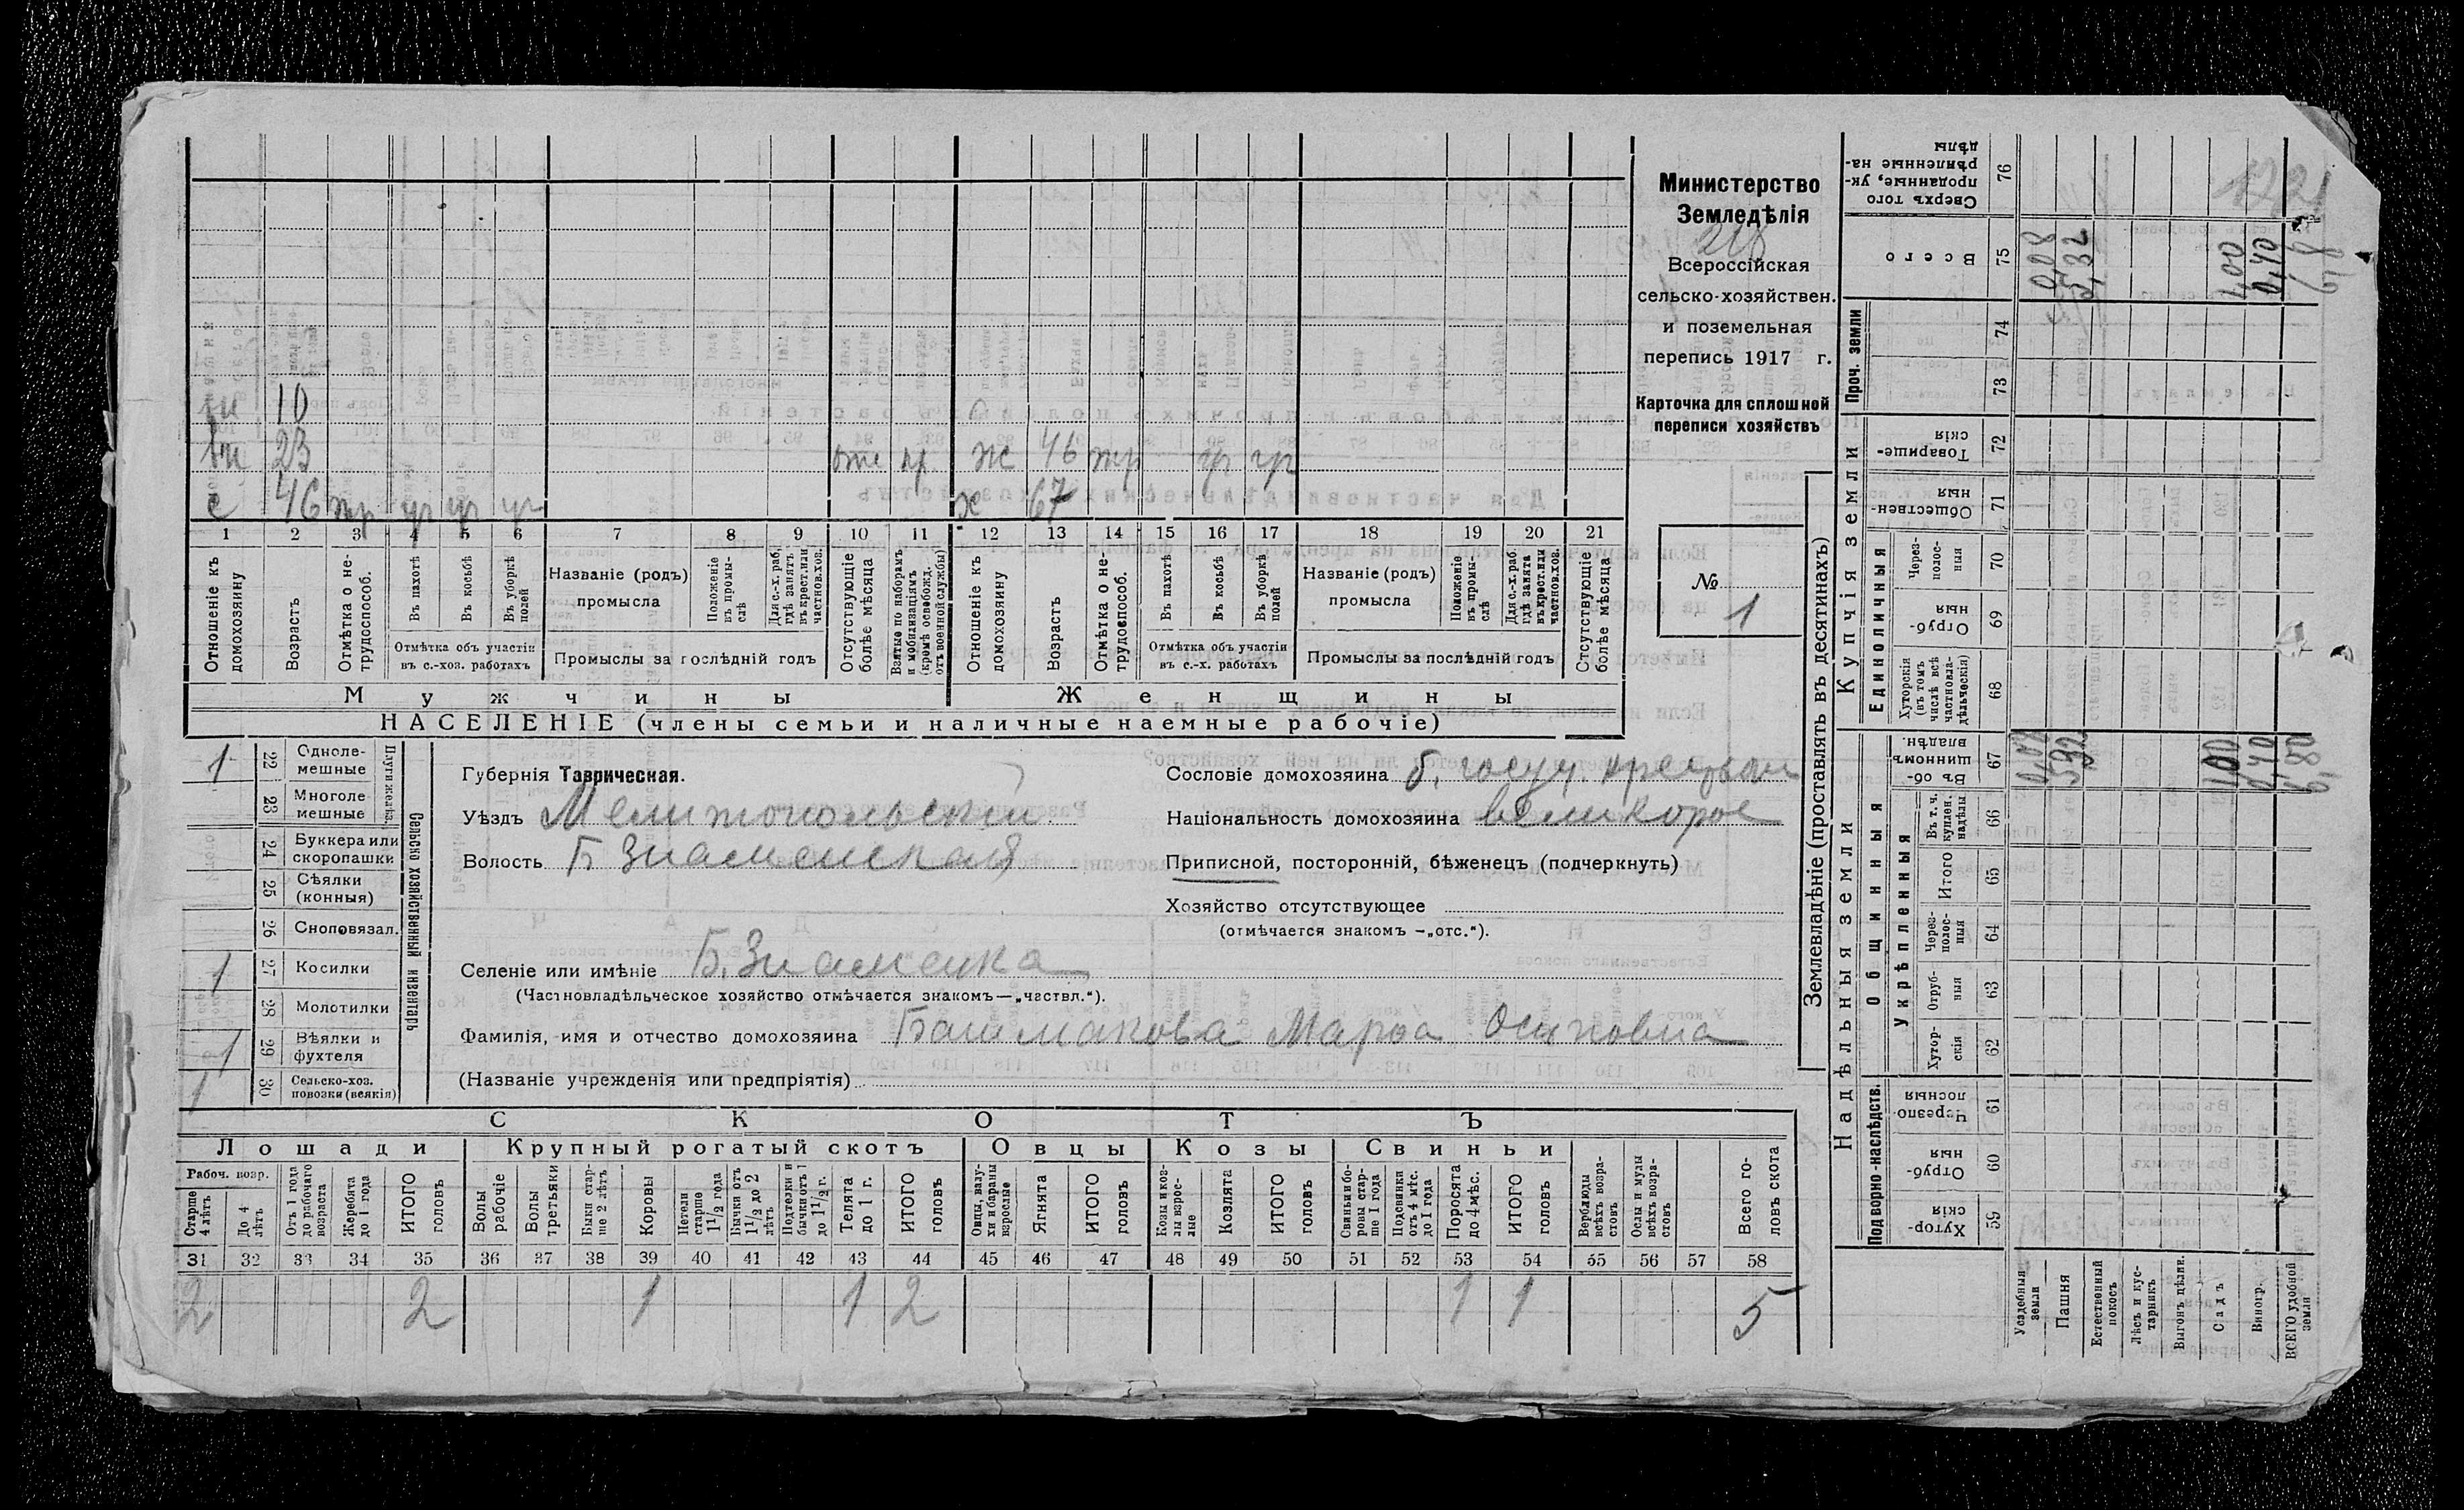 Министерство
Земледѣлія
218
Всероссійская
сельско-хозяйствен.
и поземельная
перепись 1917 г.
Карточка для сплошной
переписи хозяйствъ
№
1
вн 10
вн 23 отс пр ж 46 тр уч уч
с 46 тр уч уч уч х 67
1 2 3 4 5 6 7 8 9 10 11 12 13 14 15 16 17 18 19 20 21
Отношеніе къ домохозяину
Возрастъ
Отмѣтка о не-трудоспособ.
Въ пахотѣ
Въ косьбѣ
Въ уборкѣ полей
Отмѣтка объ участіи въ с.-хоз. работахъ
Названіе (родъ) промысла
Положеніе въ промы-слѣ
Для с.-х. раб. гдѣ занятъ въ крест. или частнов. хоз.
Промыслы за послѣдній годъ
Отсутствующіе болѣе мѣсяца
Взятые по наборамъ и мобилизаціямъ (кромѣ освобожд. отъ военной службы)
Отношеніе къ домохозяину
Возрастъ
Отмѣтка о не-трудоспособ.
Въ пахотѣ
Въ косьбѣ
Въ уборкѣ полей
Отмѣтка объ участіи въ с.-х. работахъ
Названіе (родъ) промысла
Положеніе въ промы-слѣ
Для с.-х. раб. гдѣ занята въ крест. или частнов. хоз.
Промыслы за послѣдній годъ
Отсутствующіе болѣе мѣсяца
Мужчины Женщины
НАСЕЛЕНІЕ (члены семьи и наличные наемные рабочіе)
Сельско хозяйственный инвентарь
Плуги желѣз.
1 22 Одноле-мешные
23 Многоле мешные
24 Буккера или скоропашки
25 Сѣялки (конныя)
26 Сноповязал.
1 27 Косилки
28 Молотилки
1 29 Вѣялки и фухтеля
1 30 Сельско-хоз. повозки (всякія)
Губернія Таврическая.
Уѣздъ Мелитопольскій
Волость Б Знаменская
Сословіе домохозяина б. госуд. крестьян
Національность домохозяина великорос
Приписной, посторонній, бѣженецъ (подчеркнуть)
Хозяйство отсутствующее
(отмѣчается знакомъ —„отс.“).
Селеніе или имѣніе Б. Знаменка
(Частновладѣльческое хозяйство отмѣчается знакомъ—„чствл.“).
Фамилія, имя и отчество домохозяина Башмакова Марѳа Осиповна
(Названіе учрежденія или предпріятія)
СКОТЪ
Лошади Крупный рогатый скотъ Овцы Козы Свиньи
Рабоч. возр.
Старше 4 лѣтъ
До 4 лѣтъ
Отъ 1 года до рабочаго возраста
Жеребята до 1 года
ИТОГО головъ
Волы рабочіе
Волы третьяки
Быки стар-ше 2 лѣтъ
Коровы
Нетели старше 1 1/2 года
Бычки отъ 1 1/2 до 2 лѣтъ
Подтелки и бычки отъ 1 до 1 1/2 г.
Телята до 1 г.
ИТОГО головъ
Овцы, валу-хи и бараны взрослые
Ягнята
ИТОГО головъ
Козы и коз-лы взрос-лые
Козлята
ИТОГО головъ
Свиньи и бо-ровы стар-ше 1 года
Подсвинки отъ 4 мѣс. до 1 года
Поросята до 4 мѣс.
ИТОГО головъ
Верблюды всѣхъ возра-стовъ
Ослы и мулы всѣхъ возра-стовъ
Всего го-ловъ скота
31 32 33 34 35 36 37 38 39 40 41 42 43 44 45 46 47 48 49 50 51 52 53 54 55 56 57 58
2 2 1 1 2 1 1 5
Землевладѣніе (проставлять въ десятинахъ)
Надѣльныя земли
Купчія земли
Проч. земли
Подворно-наслѣдств.
Общинныя
Укрѣпленныя
Единоличныя
Сверхъ того проданные, ук-рѣпленные на-дѣлы 76
Всего 75
74
73
Товарище-скія 72
Обществен-ныя 71
Через-полос-ныя 70
Отруб-ныя 69
Хуторскія (въ томъ числѣ всѣ частновла-дѣльческія) 68
Въ об-щинномъ владѣн. 67
Въ т. ч. куплен. надѣлы 66
Итого 65
Через-полос-ныя 64
Отруб-ныя 63
Хутор-скія 62
Черезпо-лосныя 61
Отруб-ныя 60
Хутор-скія 59
Усадебныя земли
Пашня
Естественный покосъ
Лѣсъ и кус-тарникъ
Выгонъ цѣлин.
Садъ
Виногр.
ВСЕГО удобной земли
0,08
5,32
1,00
0,40
6,8
0,08
5,32
1,00
0,40
6,80